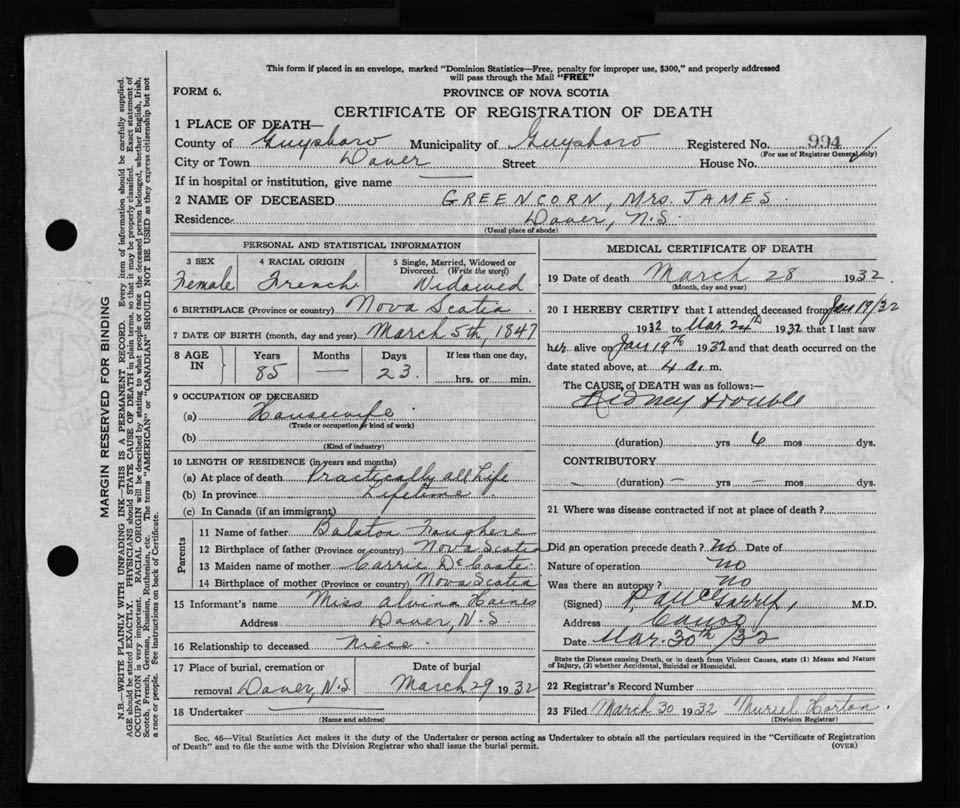 This form if placed in an envelope, marked "Dominion Statistics—Free, penalty for improper use, $300," and properly addressed
will pass through the Mail "FREE"
FORM 6. PROVINCE OF NOVA SCOTIA
CERTIFICATE OF REGISTRATION OF DEATH
1 PLACE OF DEATH—
County of Guysboro Municipality of Guysboro Registered No. 994
(For use of Registrar General only)
City or Town Dover Street House No.
If in hospital or institution, give name —
2 NAME OF DECEASED GREENCORN, Mrs. JAMES.
Residence Dover, N.S.
(Usual place of abode)
PERSONAL AND STATISTICAL INFORMATION
3 SEX 4 RACIAL ORIGIN 5 Single, Married, Widowed or
Divorced. (Write the word)
Female French Widowed
6 BIRTHPLACE (Province or country) Nova Scotia
7 DATE OF BIRTH (month, day and year) March 5th, 1847
8 AGE IN Years Months Days If less than one day,
85 — 23 hrs. or min.
9 OCCUPATION OF DECEASED
(a) Housewife
(Trade or occupation or kind of work)
(b)
(Kind of industry)
10 LENGTH OF RESIDENCE (in years and months)
(a) At place of death Practically all Life
(b) In province Lifetime
(c) In Canada (if an immigrant)
Parents
11 Name of father Balston Foughere
12 Birthplace of father (Province or country) Nova Scotia
13 Maiden name of mother Carrie DeCoste
14 Birthplace of mother (Province or country) Nova Scotia
15 Informant's name Miss Alvina Haines
Address Dover, N.S.
16 Relationship to deceased Niece
17 Place of burial, cremation or Date of burial
removal Dover, N.S. March 29 1932
18 Undertaker —
(Name and address)
MEDICAL CERTIFICATE OF DEATH
19 Date of death March 28 1932
(Month, day and year)
20 I HEREBY CERTIFY that I attended deceased from Jan 19/32
1932 to Mar. 24th 1932 that I last saw
her alive on Jan 19th 1932 and that death occurred on the
date stated above, at 4 a. m.
The CAUSE of DEATH was as follows:—
Kidney trouble
(duration) yrs 6 mos dys.
CONTRIBUTORY
(duration) — yrs — mos dys.
21 Where was disease contracted if not at place of death?
Did an operation precede death? no Date of
Nature of operation no
Was there an autopsy? no
(Signed) M.D.
Address Canso
Date Mar. 30th/32
State the Disease causing Death, or in death from Violent Causes, state (1) Means and Nature
of Injury, (2) whether Accidental, Suicidal or Homicidal.
22 Registrar's Record Number
23 Filed March 30 1932 Muriel Horton
(Division Registrar)
Sec. 46—Vital Statistics Act makes it the duty of the Undertaker or person acting as Undertaker to obtain all the particulars required in the "Certificate of Registration
of Death" and to file the same with the Division Registrar who shall issue the burial permit. (OVER)
MARGIN RESERVED FOR BINDING
N.B.—WRITE PLAINLY WITH UNFADING INK—THIS IS A PERMANENT RECORD. Every item of information should be carefully supplied.
AGE should be stated EXACTLY. PHYSICIANS should STATE CAUSE OF DEATH in plain terms, so that it may be properly classified. Exact statement of
OCCUPATION is very important. RACIAL ORIGIN will be described by stating to what people or race the deceased person belonged, whether English, Irish,
Scotch, French, German, Russian, Ruthenian, etc. The terms "AMERICAN" or "CANADIAN" SHOULD NOT BE USED as they express citizenship but not
a race or people. See instructions on back of Certificate.